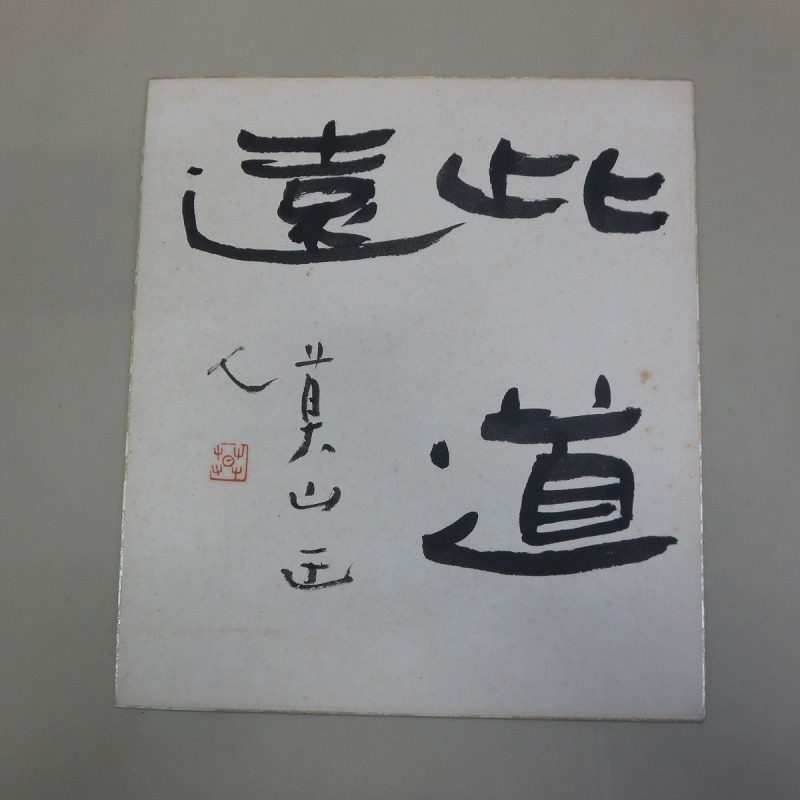 此道
遠
莫山
人